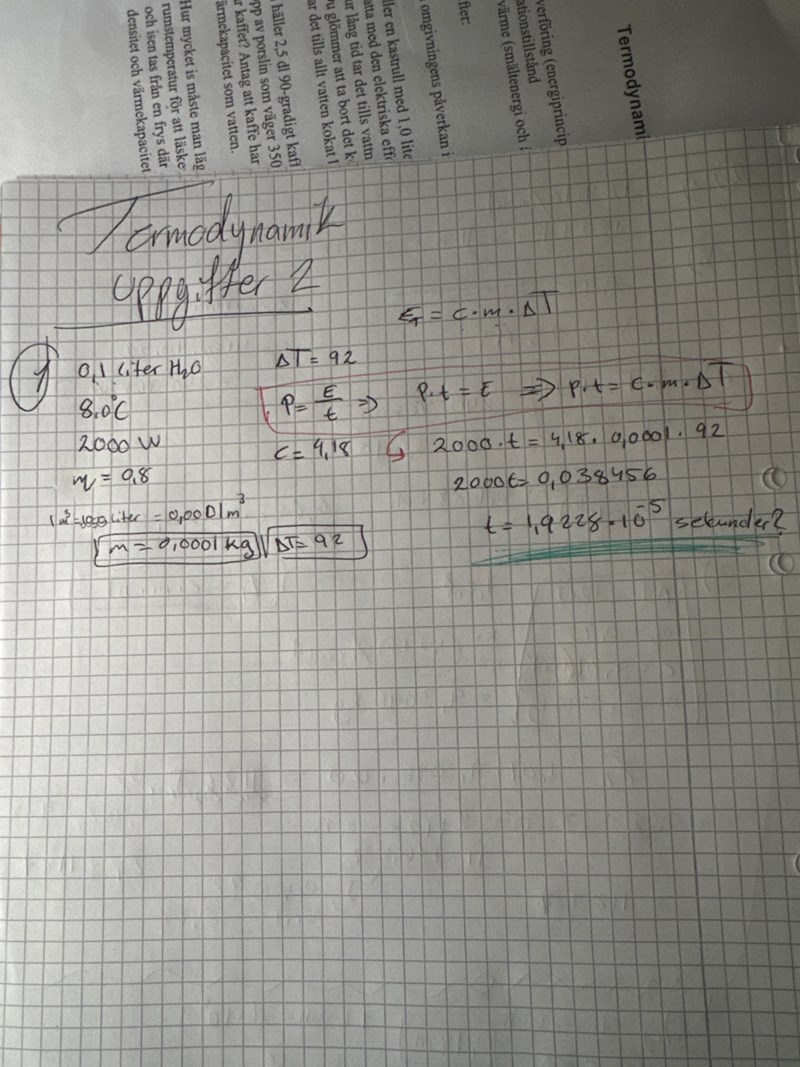 Termodynami
verföring (energiprincip
ationstillstånd
värme (smältenergi och
fter:
omgivningens påverkan i
ller en kastrull med 1,0 lite
atta med den elektriska effe
ur lång tid tar det tills vattn
u glömmer att ta bort det k
ar det tills allt vatten kokat
häller 2,5 dl 90-gradigt kaff
pp av porslin som väger 350
r kaffet? Antag att kaffe har
ärmekapacitet som vatten.
Hur mycket is måste man läg
rumstemperatur för att läske
och isen tas från en frys där
densitet och värmekapacitet
Termodynamik
uppgifter 2
E_T = c·m·ΔT
1
0,1 liter H₂O
ΔT = 92
8,0°C
P = E/t ⇒ P·t = E ⇒ P·t = c·m·ΔT
2000 W
c = 4,18
2000·t = 4,18·0,0001·92
m = 0,8
2000t = 0,038456
1m³=1000 liter = 0,0001m³
t = 1,9228·10⁻⁵ sekunder?
m = 0,0001 kg
ΔT = 92